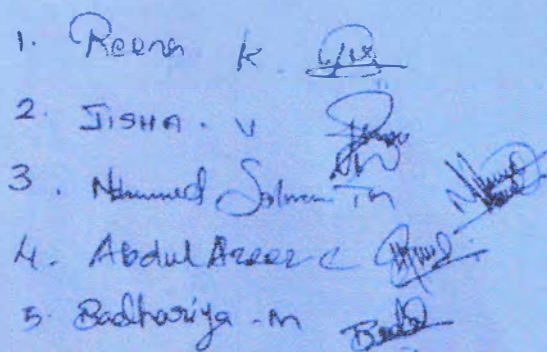 1. Reena K.
2. JISHA. V
3. Salman TM
4. Abdul Azeez C
5. Badhariya - M